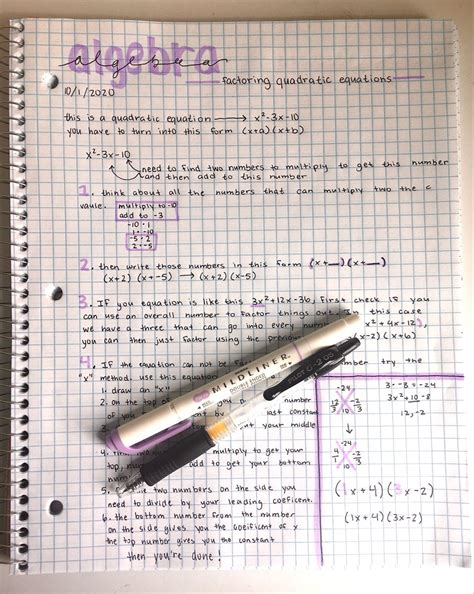 algebra
algebra
factoring quadratic equations
10/1/2020
this is a quadratic equation → x²-3x-10
you have to turn into this form (x+a)(x+b)
x²-3x-10
need to find two numbers to multiply to get this number
and then add to this number
1. think about all the numbers that can multiply two the c
vaule. multiply to -10
add to -3
-10 · 1
1 · -10
-5 · 2
2 · -5
2. then write those numbers in this form (x+__)(x+__)
(x+2)(x+-5) → (x+2)(x-5)
3. If you equation is like this 3x²+12x-36, first check if you
can use an overall number to factor things out. In this case
we have a three that can go into every x²+4x-12),
you can then just factor using the -2)(x+6)
4. If the equation can not be number try the
"x" method. use this equation
1. draw an "x"
2. on the top number
of last constant
your middle
multiply to get your
top, add to get your bottom
5. two numbers on the side you
need to divide by your leading coeficent.
6. the bottom number from the number
on the side gives you the coeficent of x
the top number gives you the constant
then you're done!
MILDLINER
DOUBLE ENDED
PILOT G-2 05
-24
12 -2
3 10 3
-24
4 -2
1 3
10
3·-8=-24
3x²+10-8
12,-2
(1x+4)(3x-2)
(1x+4)(3x-2)